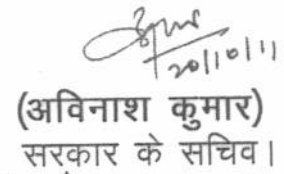 20/10/11
(अविनाश कुमार)
सरकार के सचिव।